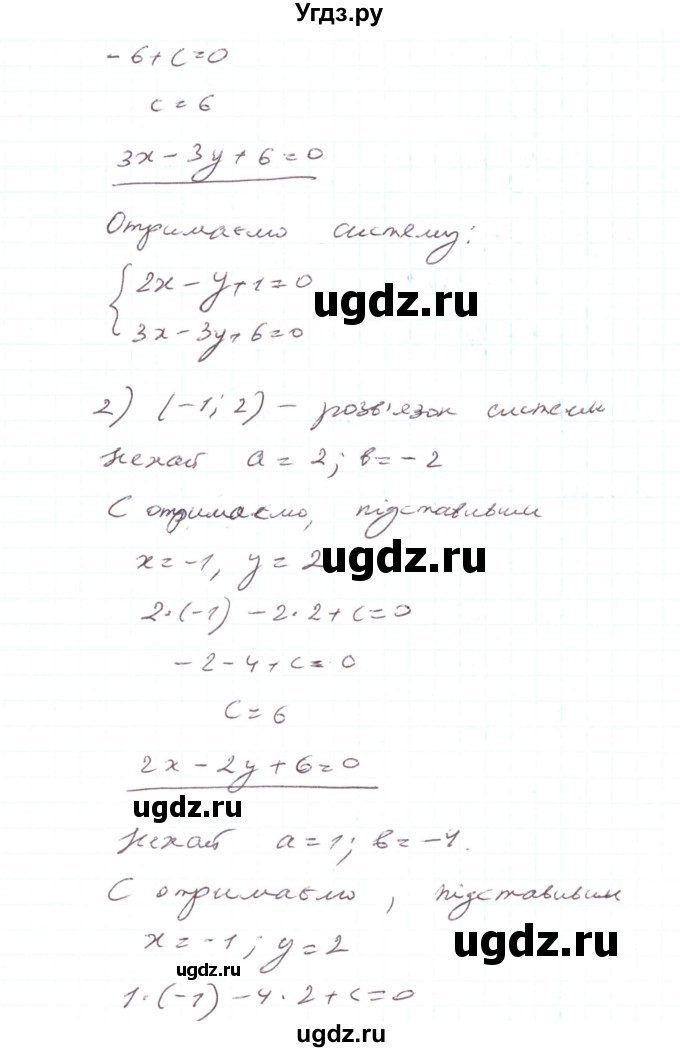 Угдз.ру
-6+c=0
c=6
3x-3y+6=0
Отримаємо систему:
{2x-y+1=0
3x-3y+6=0
ugdz.ru
2) (-1; 2) - розв'язок системи
Нехай a=2; b=-2
C отримаємо, підставивши
x=-1, y=2
ugdz.ru
2·(-1)-2·2+c=0
-2-4+c=0
C=6
2x-2y+6=0
ugdz.ru
Нехай a=1; b=-4.
C отримаємо, підставивши
x=-1; y=2
ugdz.ru
ugdz.ru
1·(-1)-4·2+c=0
ugdz.ru